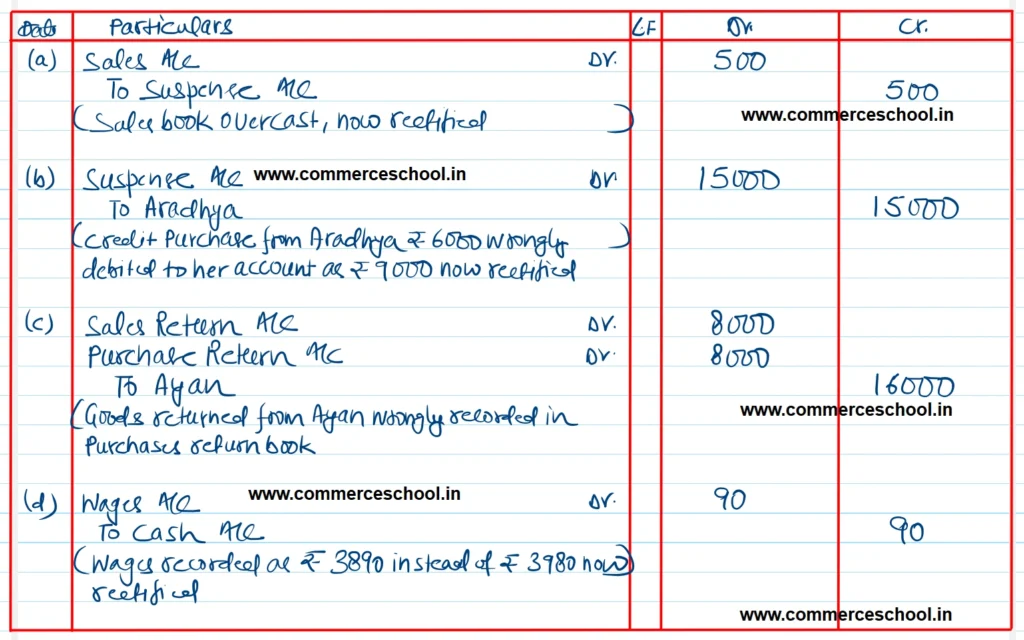 Date Particulars L.F Dr. Cr.
(a) Sales A/c Dr. 500
To Suspense A/c 500
(Sales book overcast, now rectified) www.commerceschool.in
(b) Suspense A/c www.commerceschool.in Dr 15000
To Aradhya 15000
(Credit Purchase from Aradhya ₹ 6000 wrongly)
debited to her account as ₹ 9000 now rectified
(c) Sales Return A/c Dr. 8000
Purchase Return A/c Dr. 8000
To Ayan 16000
(Goods returned from Ayan wrongly recorded in www.commerceschool.in
Purchases return book
(d) Wages A/c www.commerceschool.in Dr. 90
To Cash A/c 90
(Wages recorded as ₹ 3890 instead of ₹ 3980 now)
rectified
www.commerceschool.in